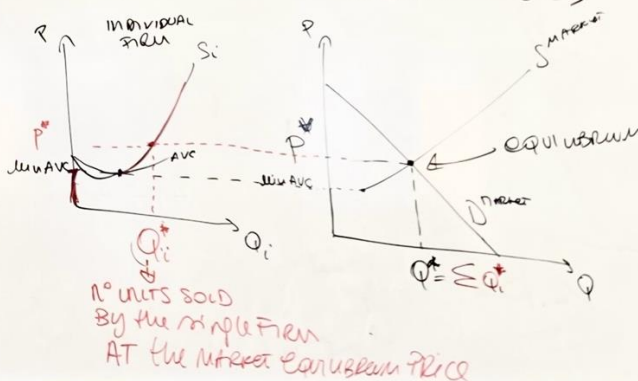 P
INDIVIDUAL
FIRM
Si
P*
Min AVC
AVC
Qi
Qi*
N° UNITS SOLD
By the single FIRM
AT the MARKET EQUILIBRIUM PRICE
P
S MARKET
P*
EQUILIBRIUM
Min AVC
D MARKET
Q* = Σ Qi*
Q